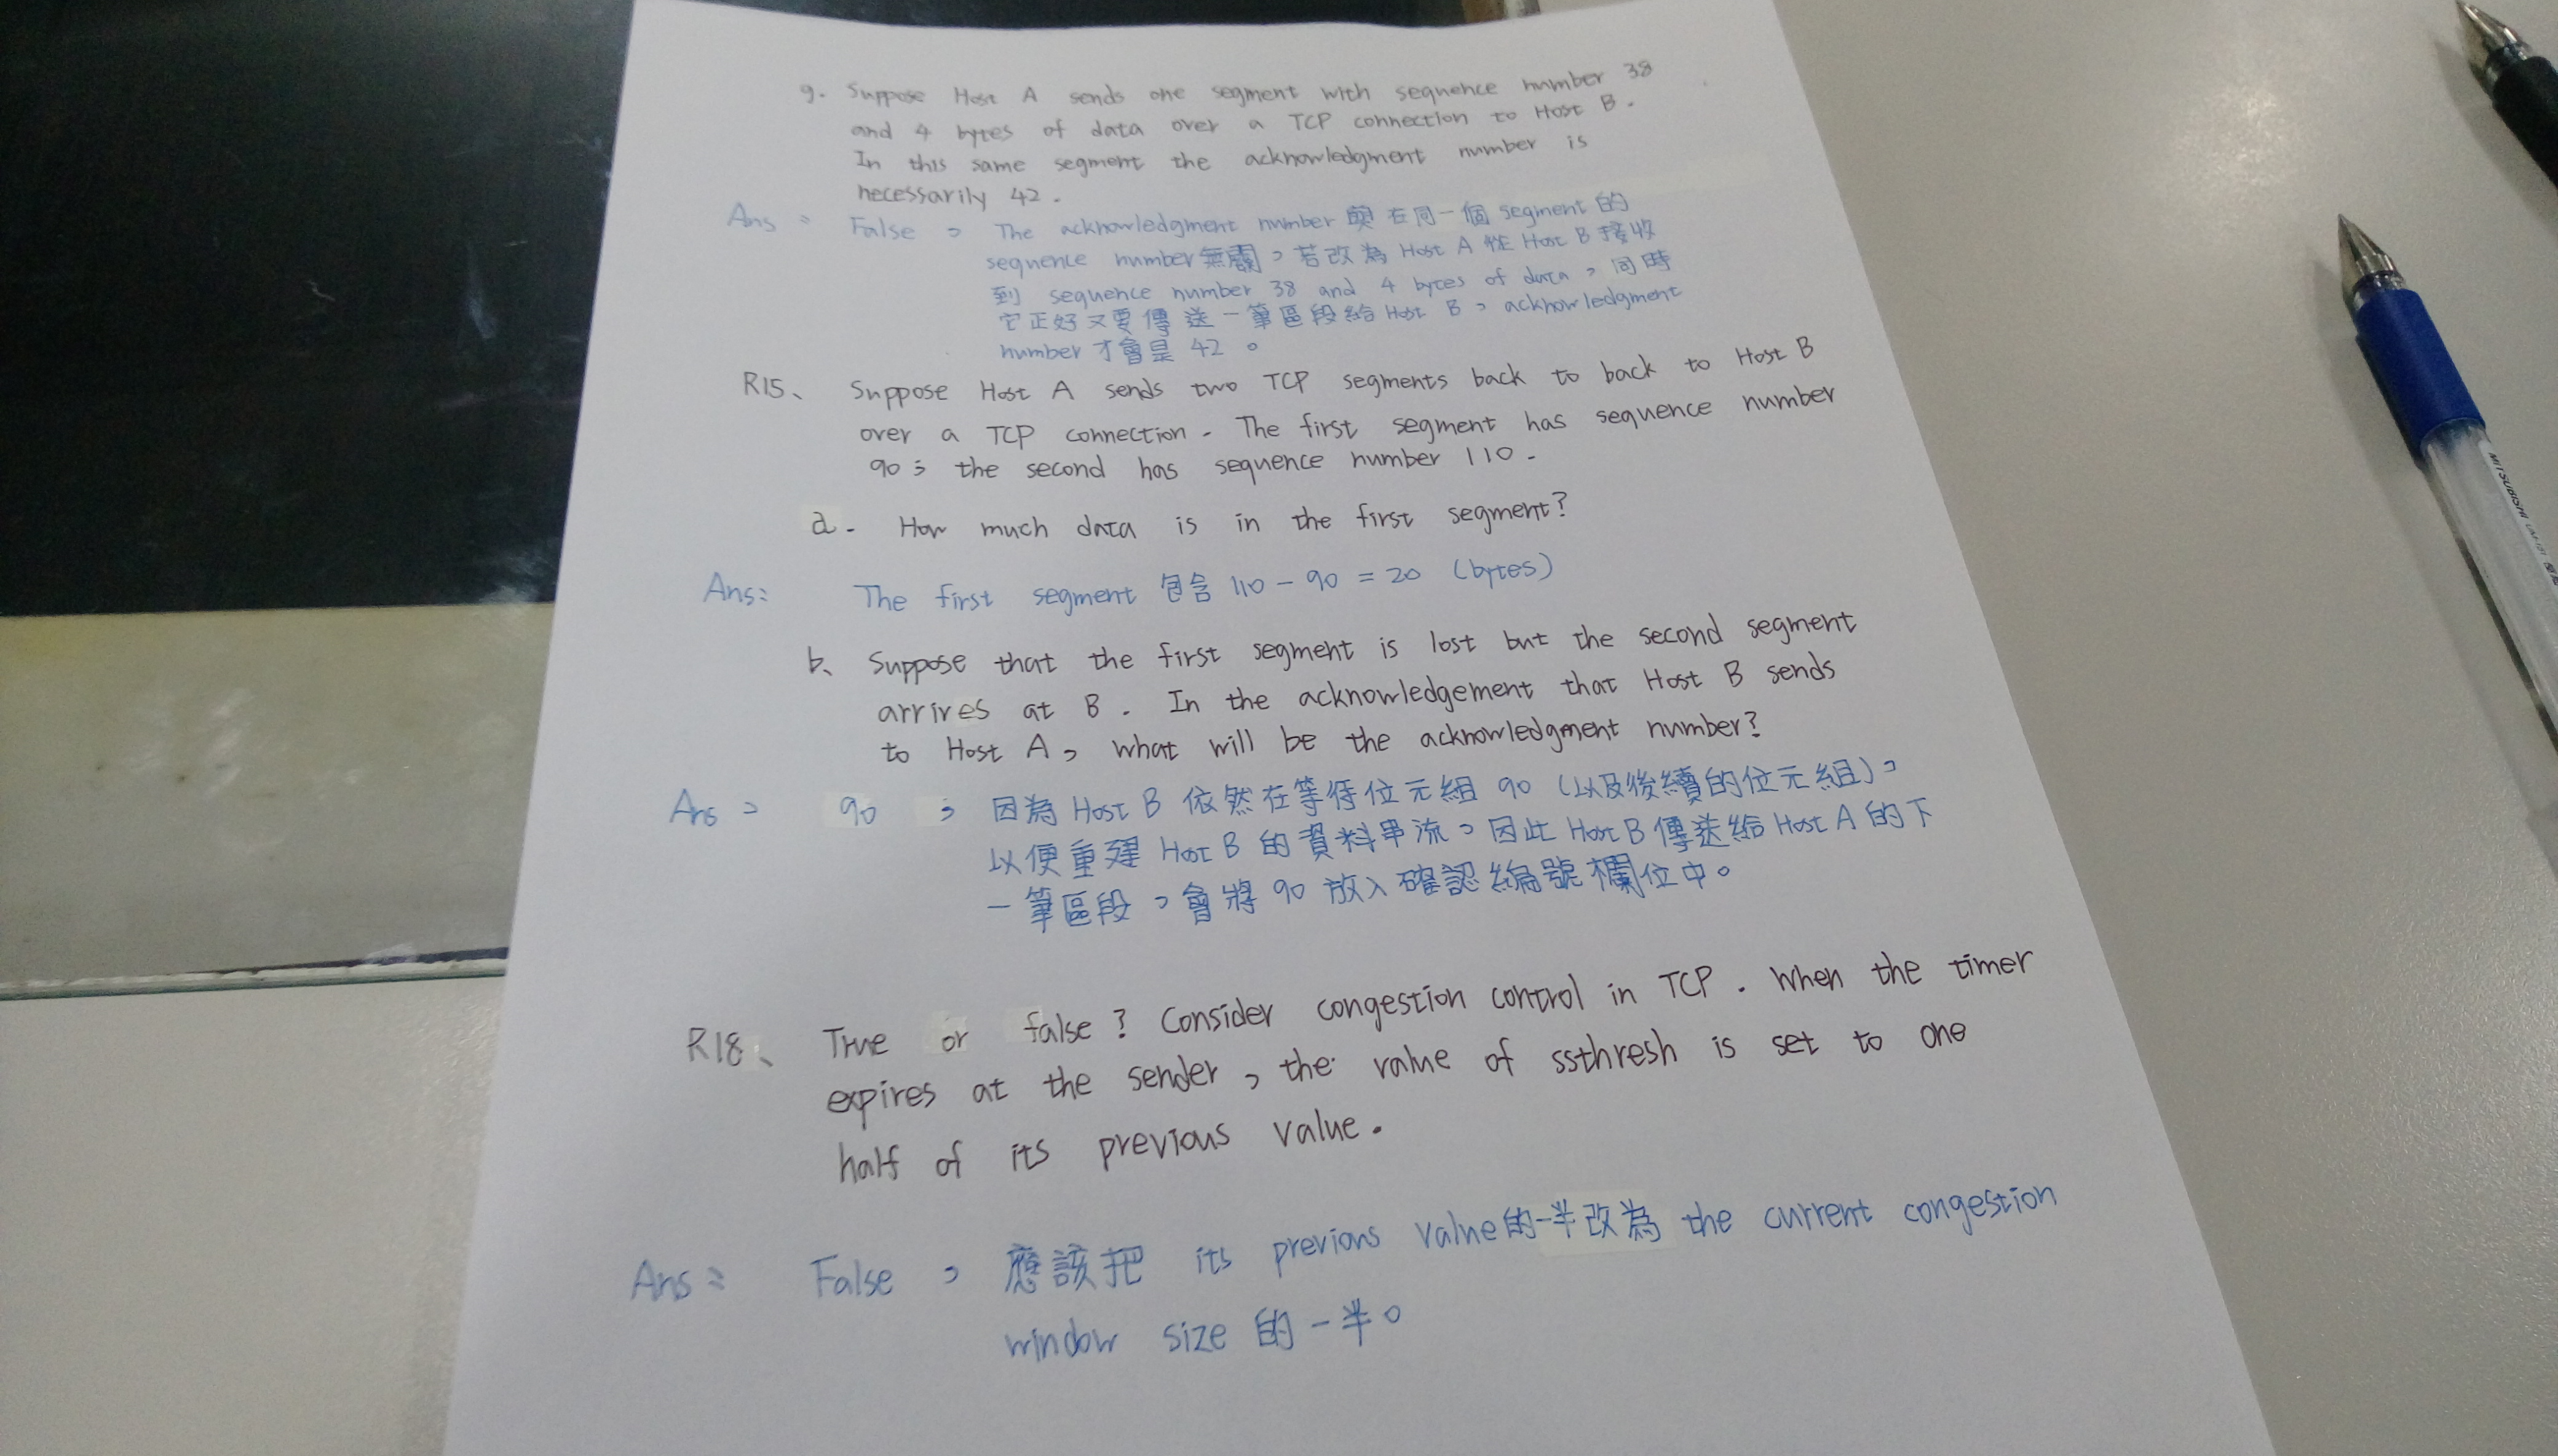 g. Suppose Host A sends one segment with sequence number 38
and 4 bytes of data over a TCP connection to Host B.
In this same segment the acknowledgment number is
necessarily 42.
Ans: False, The acknowledgment number 與在同一個 segment 的
sequence number 無關，若改為 Host A 從 Host B 接收
到 sequence number 38 and 4 bytes of data，同時
它正好又要傳送一筆區段給 Host B，acknowledgment
number 才會是 42。
R15、 Suppose Host A sends two TCP segments back to back to Host B
over a TCP connection. The first segment has sequence number
90; the second has sequence number 110.
a. How much data is in the first segment?
Ans: The first segment 包含 110 - 90 = 20 (bytes)
b、 Suppose that the first segment is lost but the second segment
arrives at B. In the acknowledgement that Host B sends
to Host A, what will be the acknowledgment number?
Ans: 90 ; 因為 Host B 依然在等待位元組 90 (以及後續的位元組)，
以便重建 Host B 的資料串流。因此 Host B 傳送給 Host A 的下
一筆區段，會將 90 放入確認編號欄位中。
R18、 True or false? Consider congestion control in TCP. When the timer
expires at the sender, the value of ssthresh is set to one
half of its previous value.
Ans: False, 應該把 its previous value 的一半改為 the current congestion
window size 的一半。
MITSUBISHI